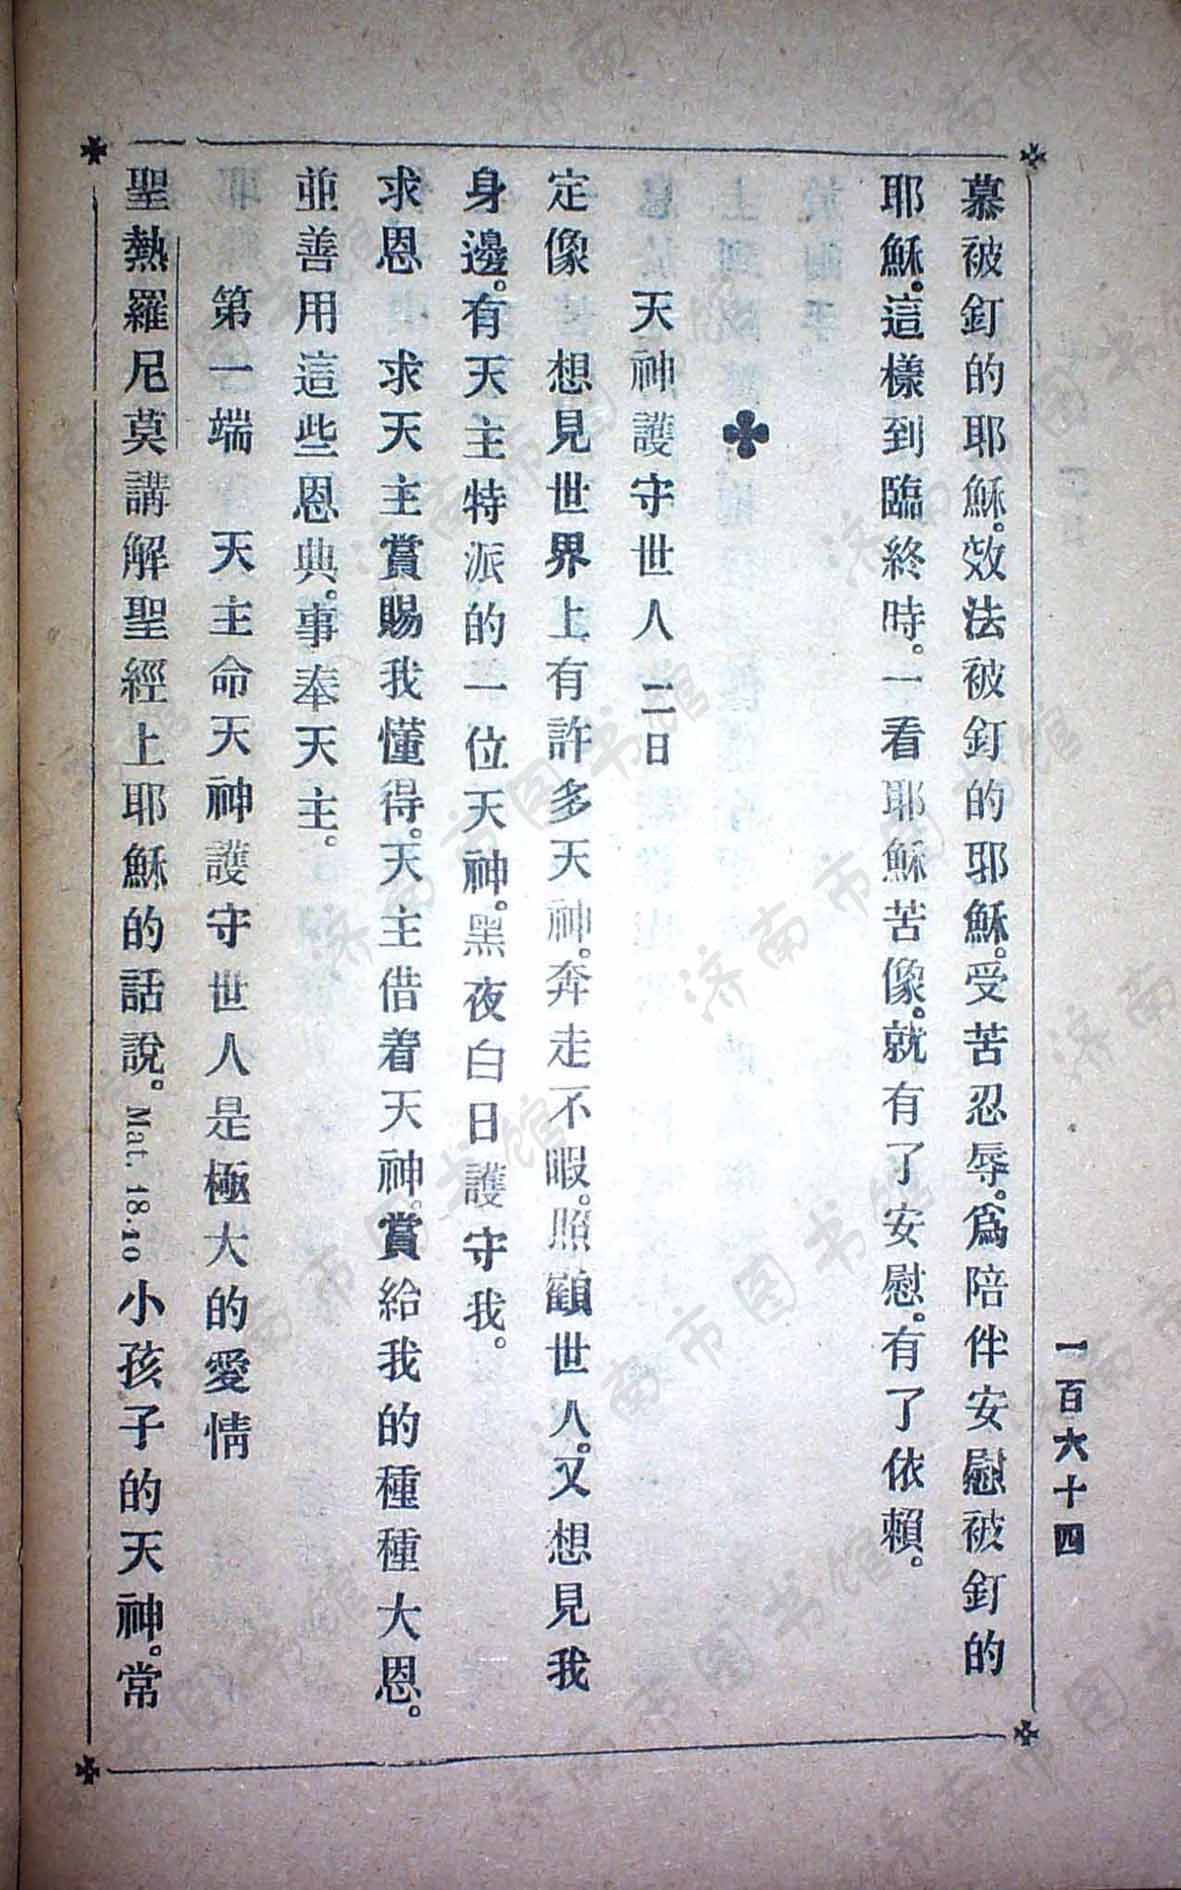 一百六十四
慕被釘的耶穌。效法被釘的耶穌。受苦忍辱。爲陪伴安慰被釘的
耶穌。這樣到臨終時。一看耶穌苦像。就有了安慰。有了依賴。
天神護守世人 二日
定像 想見世界上有許多天神。奔走不暇。照顧世人。又想見我
身邊。有天主特派的一位天神。黑夜白日護守我。
求恩 求天主賞賜我懂得。天主借着天神。賞給我的種種大恩。
並善用這些恩典。事奉天主。
第一端 天主命天神護守世人是極大的愛情
聖熱羅尼莫講解聖經上耶穌的話說。Mat. 18.10 小孩子的天神。常
济南市图书馆